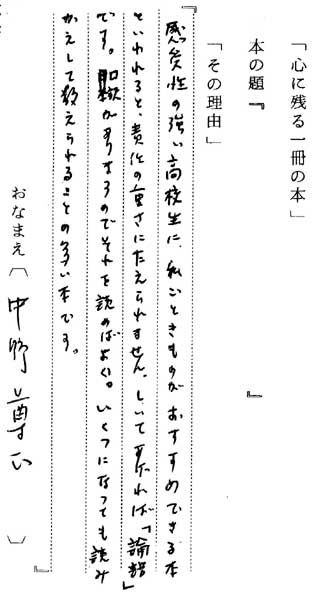 「心に残る一冊の本」
本の題『 』
「その理由」
『感受性の強い高校生に、私ごときものがおすすめできる本
といわれると、責任の重さにたえられません。しいて云れば「論語」
です。和訳がありますのでそれを読めばよい。いくつになっても読み
かえして教えられることの多い本です。
』
おなまえ〔中野尊正〕